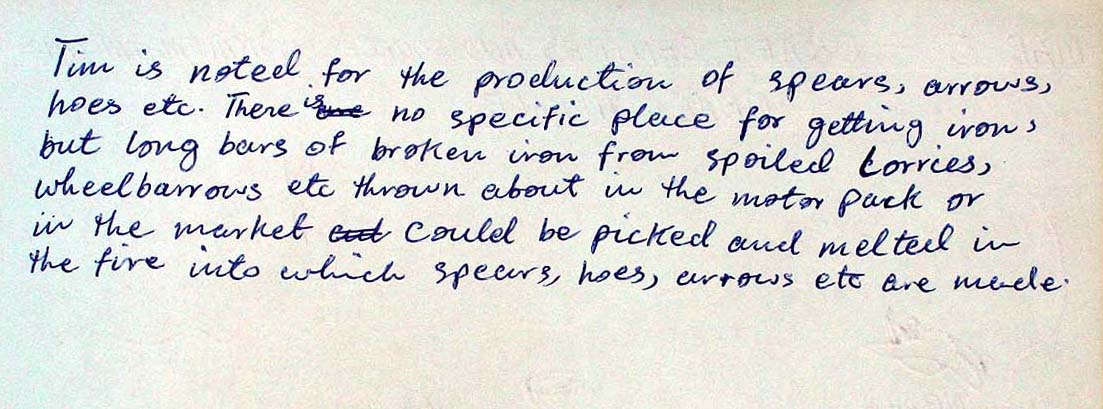 Tim is noted for the production of spears, arrows,
hoes etc. There is no specific place for getting iron,
but long bars of broken iron from spoiled Lorries,
wheelbarrows etc thrown about in the motor pack or
in the market could be picked and melted in
the fire into which spears, hoes, arrows etc are made.